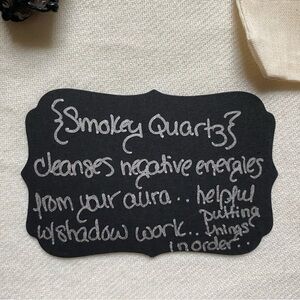 {Smokey Quartz}
cleanses negative energies
from your aura.. helpful
w/shadow work.. putting
things
in order..